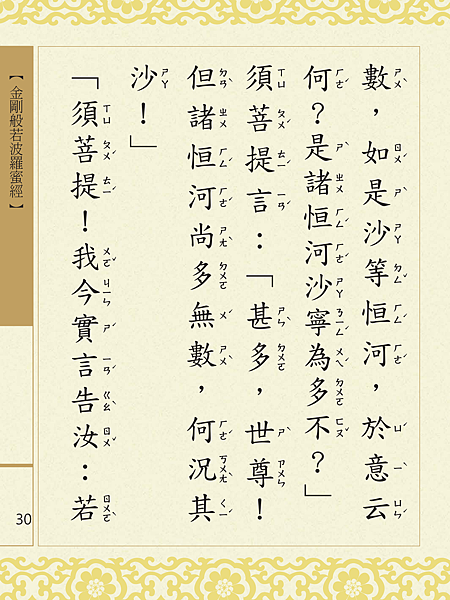 數，如是沙等恒河，於意云
何？是諸恒河沙寧為多不？」
須菩提言：「甚多，世尊！
但諸恒河尚多無數，何況其
沙！」
「須菩提！我今實言告汝：若
【金剛般若波羅蜜經】
30